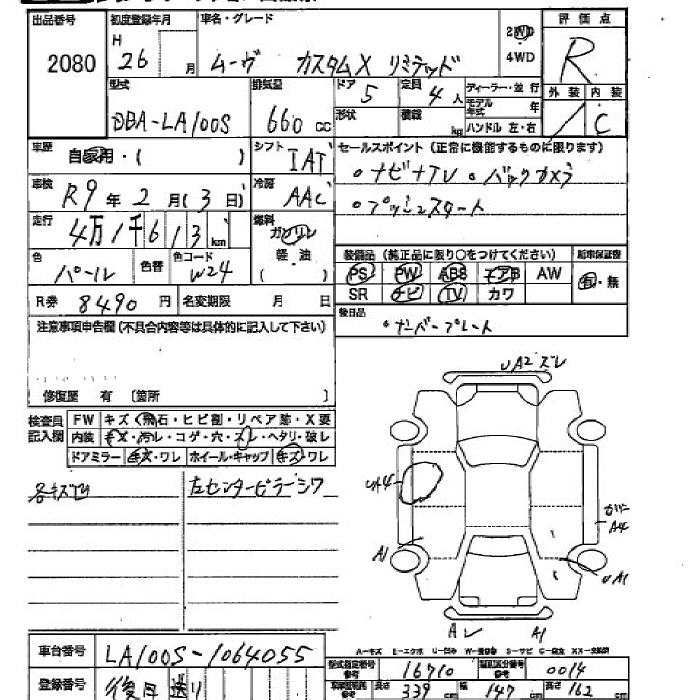 出品番号 初度登録年月 車名・グレード 評価点
2080 H 26 月 ムーヴ カスタムX リミテッド 2WD 4WD R
型式 排気量 ドア 5 定員 4人 ディーラー・並行 外装 内装
DBA-LA100S 660cc 形状 積載 kg モデル年式 年 ハンドル 左・右 C
車歴 自家用・( ) シフト IAT セールスポイント (正常に機能するものに限ります)
車検 R9年2月(3日) 冷房 AAC 。ナビ+TV 。バックカメラ
走行 4万1千613km 燃料 ガソリン 。プッシュスタート
軽・油 ( )
色 パール 色替 色コード W24 装備品 (純正品に限り○をつけてください)
PS PW ABS エアB AW 有・無
R券 8490円 名変期限 月 日 SR ナビ TV カワ
注意事項申告欄(不具合内容等は具体的に記入して下さい) 後日品 。ナンバープレート
修復歴 有 〔箇所 〕 UA2 ズレ
検査員記入欄 FW キズ・飛石・ヒビ割・リペア跡・X要
内装 キズ・汚レ・コゲ・穴・スレ・ヘタリ・破レ
ドアミラー キズ・ワレ ホイール・キャップ キズ・ワレ
左センターピラーシワ
UA4 カバーA4
A1 UA1
A1
A-キズ E-エクボ U-凹み S-サビ
車台番号 LA100S-1064055
型式指定番号 16710 類別区分番号 0014
登録番号 後日送り 長さ 339 幅 147 高さ 162